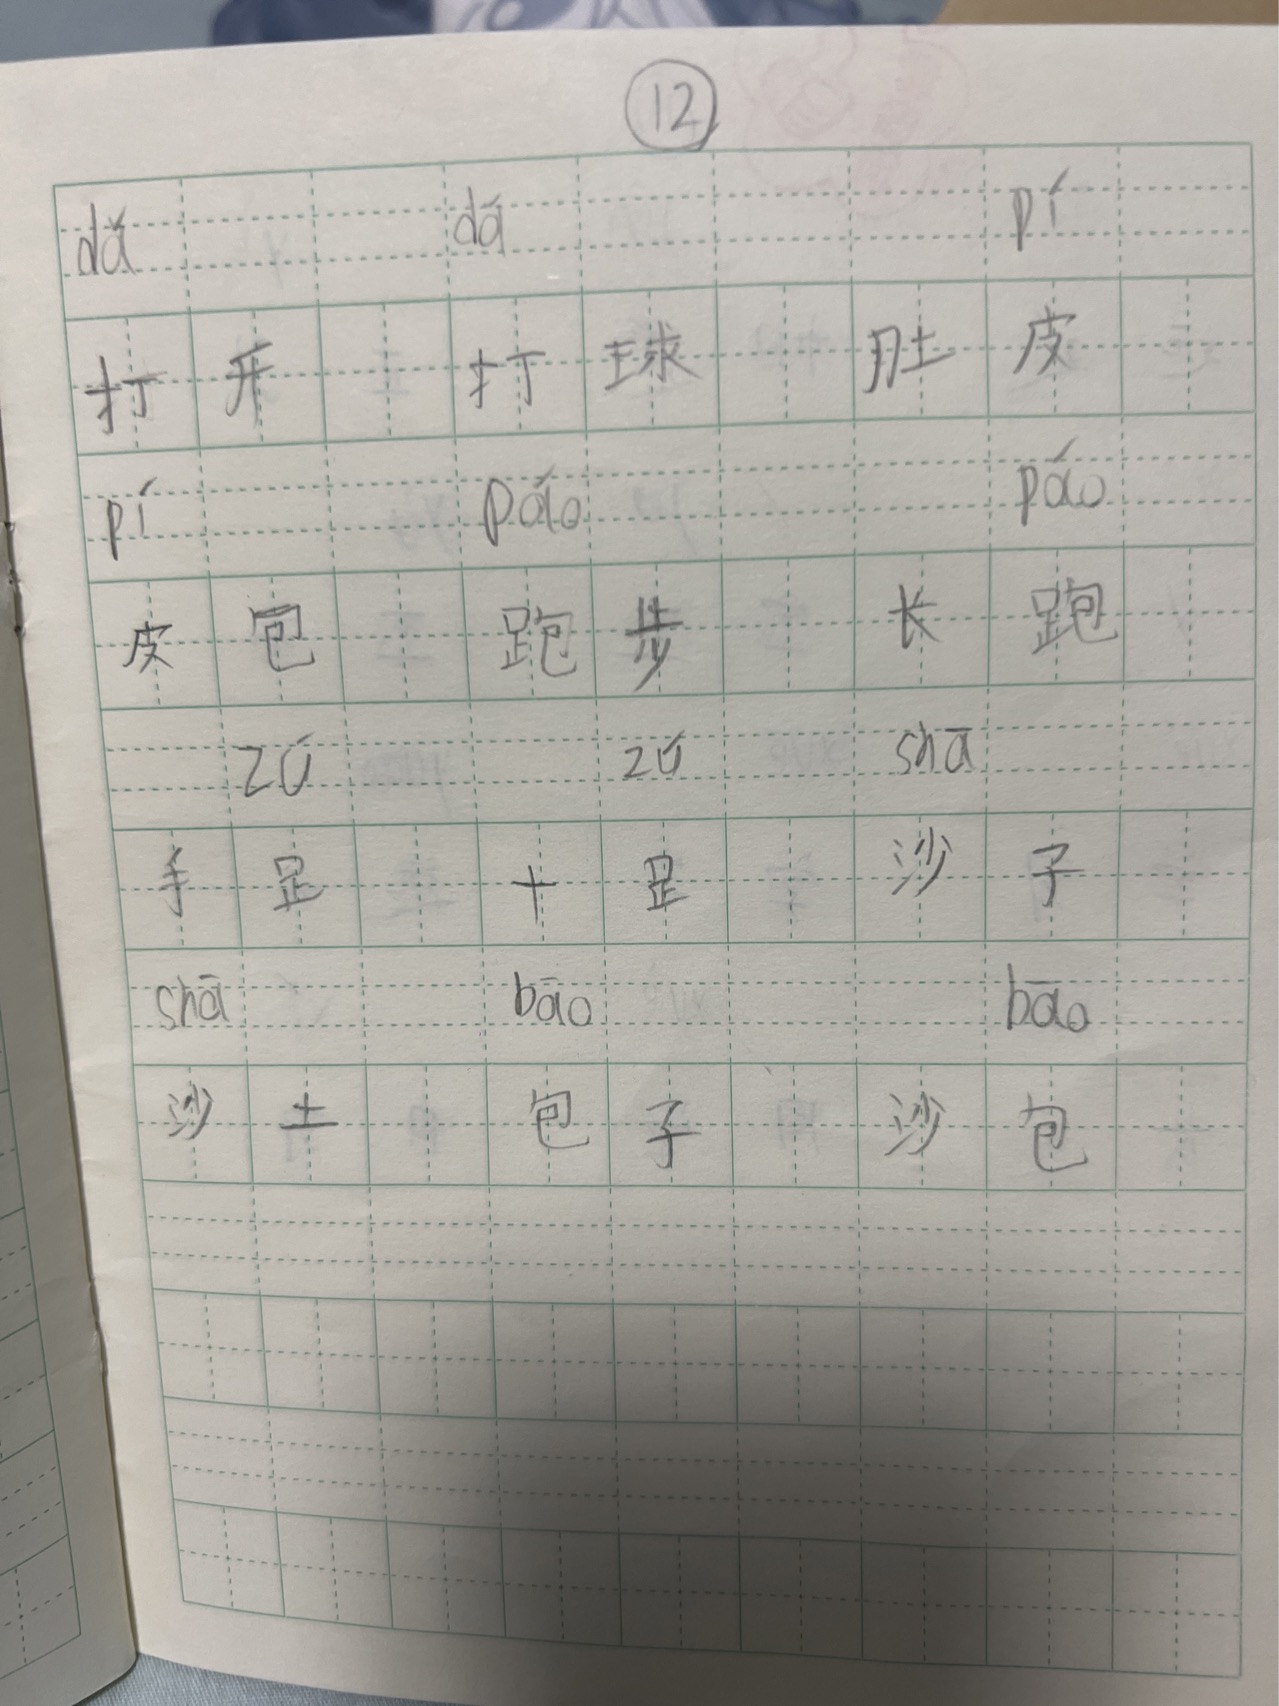 12
dǎ dǎ pí
打开 打球 肚皮
pí pǎo pǎo
皮包 跑步 长跑
zú zú shā
手足 十足 沙子
shā bāo bāo
沙土 包子 沙包